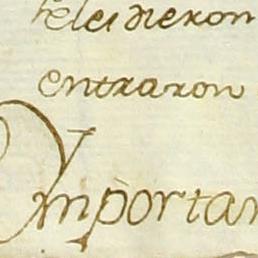 le dieron
entraron
Importan